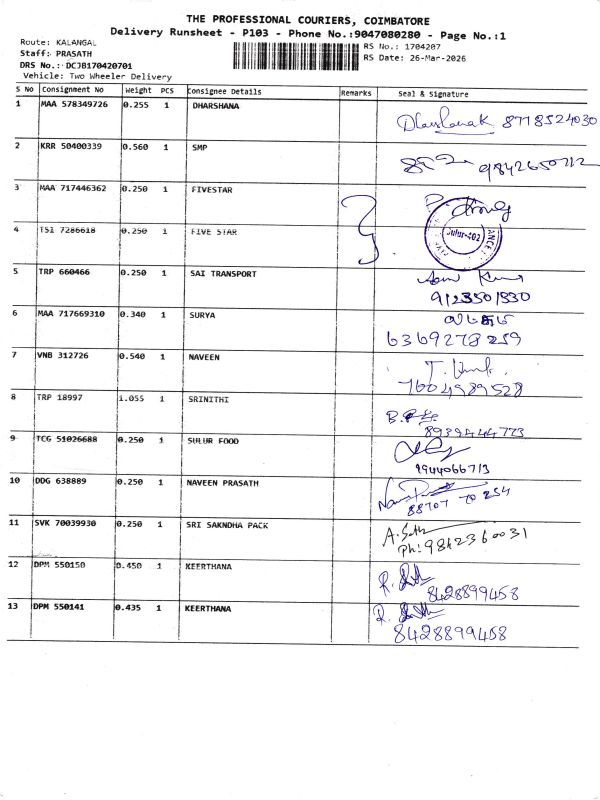 THE PROFESSIONAL COURIERS, COIMBATORE
Delivery Runsheet - P103 - Phone No.:9047080280 - Page No.:1
Route: KALANGAL
Staff: PRASATH
DRS No.: DCJB170420701
Vehicle: Two Wheeler Delivery
RS No.: 1704207
RS Date: 26-Mar-2026
S No Consignment No Weight PCS Consignee Details Remarks Seal & Signature
1 MAA 578349726 0.255 1 DHARSHANA
8718524030
2 KRR 50400339 0.560 1 SMP
9842650712
3 MAA 717446362 0.250 1 FIVESTAR
4 TSI 7286618 0.250 1 FIVE STAR
Sulur-402
5 TRP 660466 0.250 1 SAI TRANSPORT
9123501330
6 MAA 717669310 0.340 1 SURYA
6369278259
7 VNB 312726 0.540 1 NAVEEN
7604989528
8 TRP 18997 1.055 1 SRINITHI
8939444773
9 TCG 51026688 0.250 1 SULUR FOOD
9944066713
10 DDG 638889 0.250 1 NAVEEN PRASATH
88707 70 254
11 SVK 70039930 0.250 1 SRI SAKNDHA PACK
Ph: 9842360031
12 DPM 550150 0.450 1 KEERTHANA
8428899458
13 DPM 550141 0.435 1 KEERTHANA
8428899458